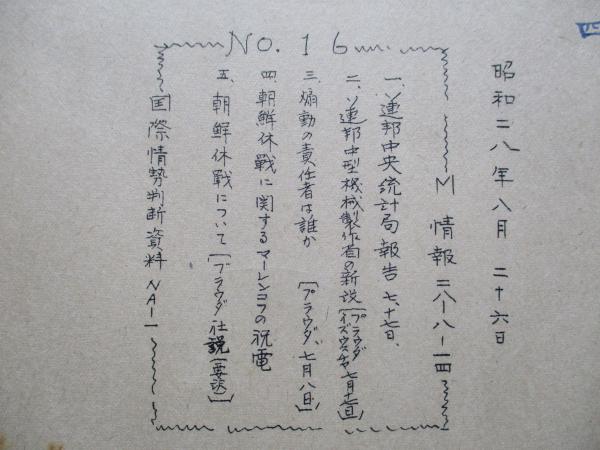 四
昭和二八年八月二十六日
NO. 16
M情報二八-八-一四
一、ソ連邦中央統計局報告 七、十七日、
二、ソ連邦中型機械製作省の新設〔プラウダ イズヴェスチヤ 七月十七日〕
三、煽動の責任者は誰か〔プラウダ、七月八日〕
四、朝鮮休戦に関するマーレンコフの祝電
五、朝鮮休戦について〔プラウダ社説(要約)〕
国際情勢判断資料NA-1